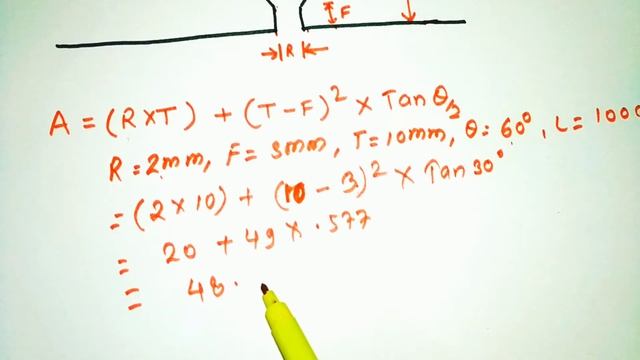 F
R
A = (R×T) + (T-F)² × Tan θ/2
R = 2mm, F = 3mm, T = 10mm, θ = 60°, L = 1000
= (2 × 10) + (10 - 3)² × Tan 30°
= 20 + 49 × .577
= 48.